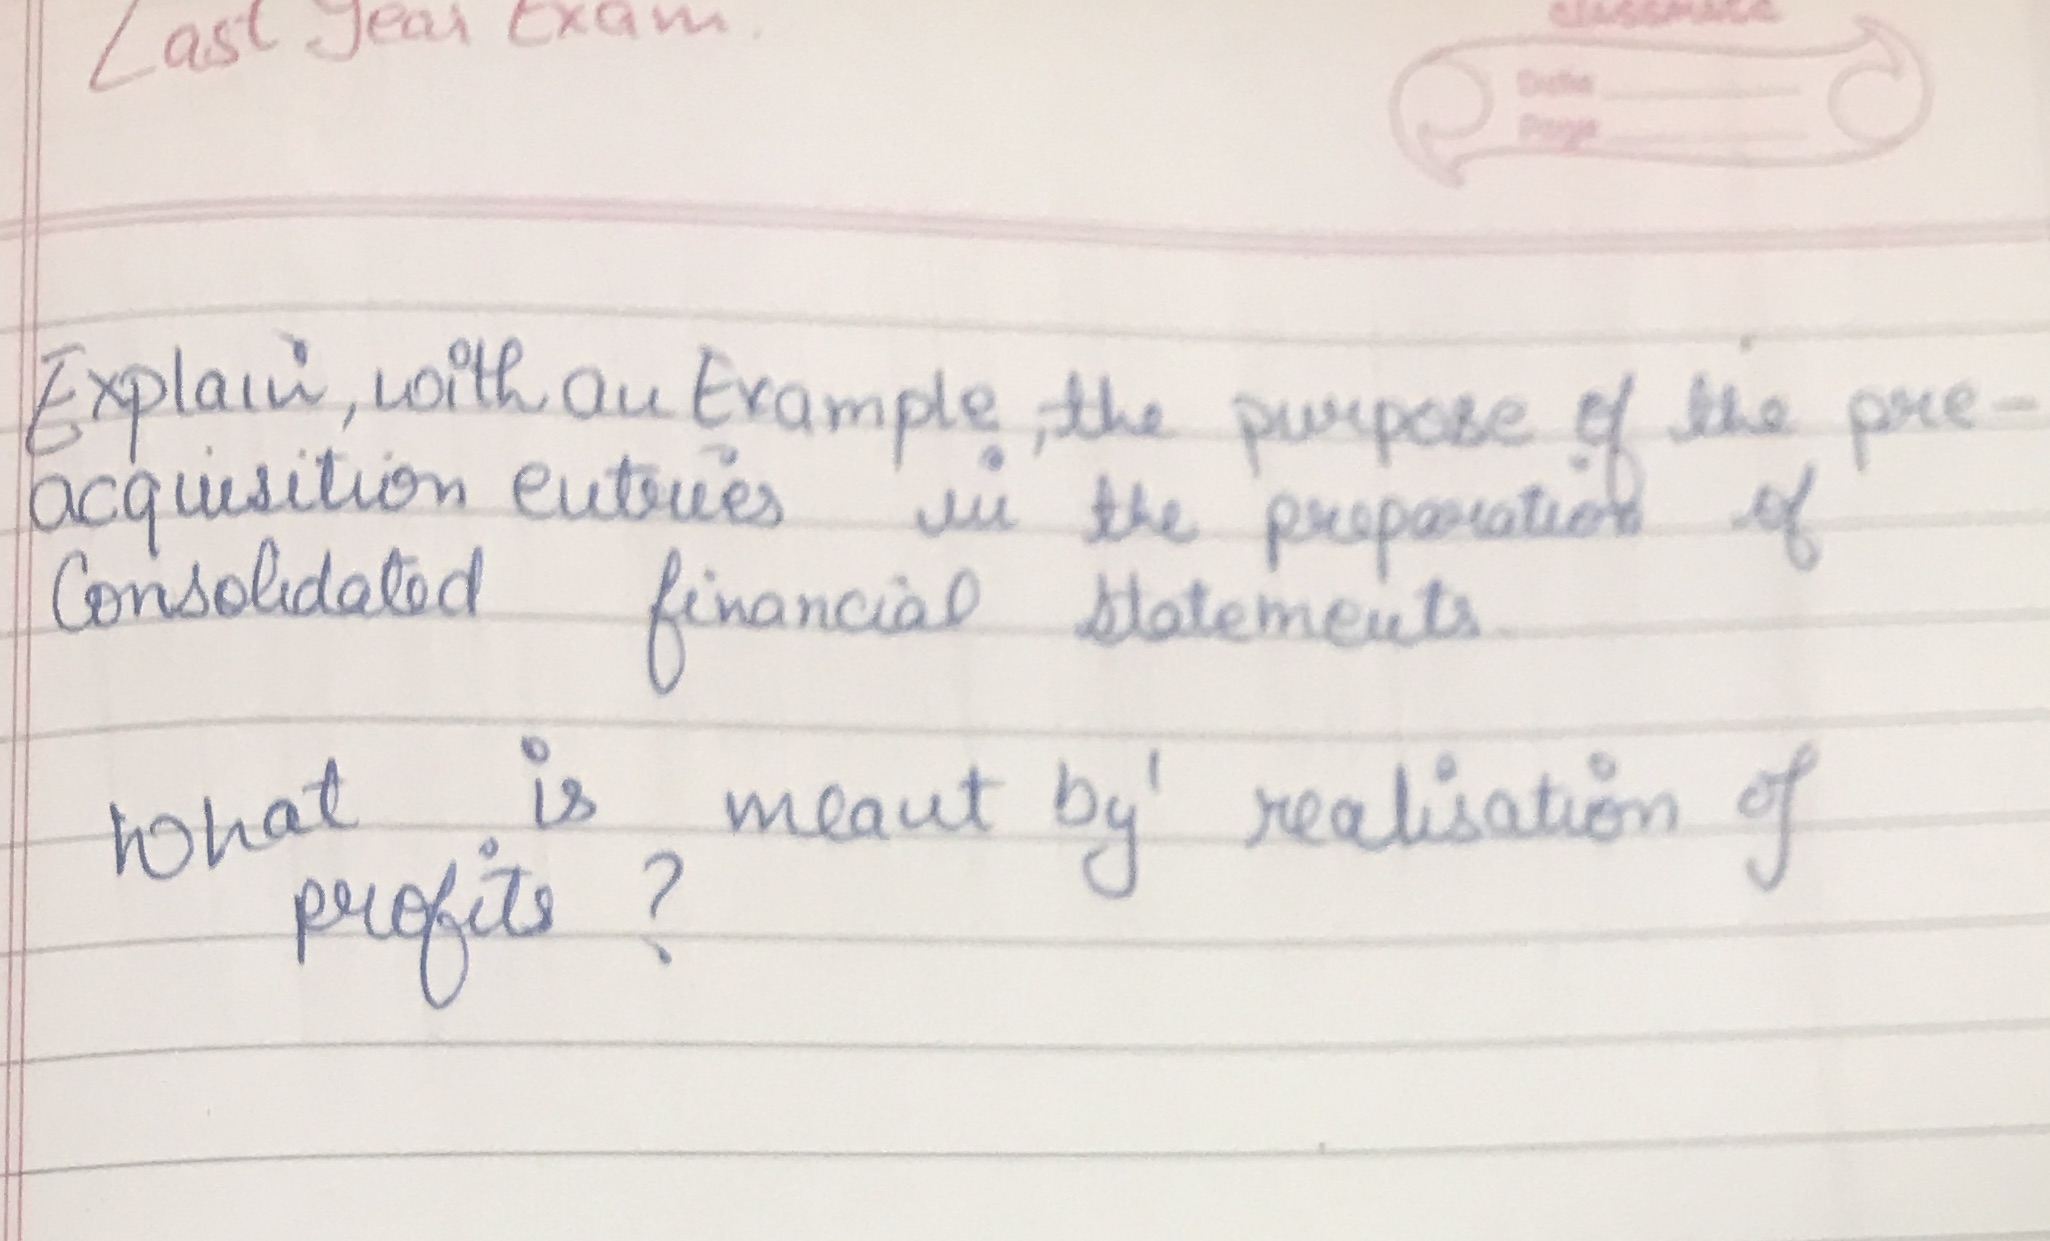 Last Year Exam.
classmate
Date
Page
Explain, with an Example, the purpose of the pre-
acquisition entries in the preparation of
Consolidated financial statements.
What is meant by ' realisation of
profits ?